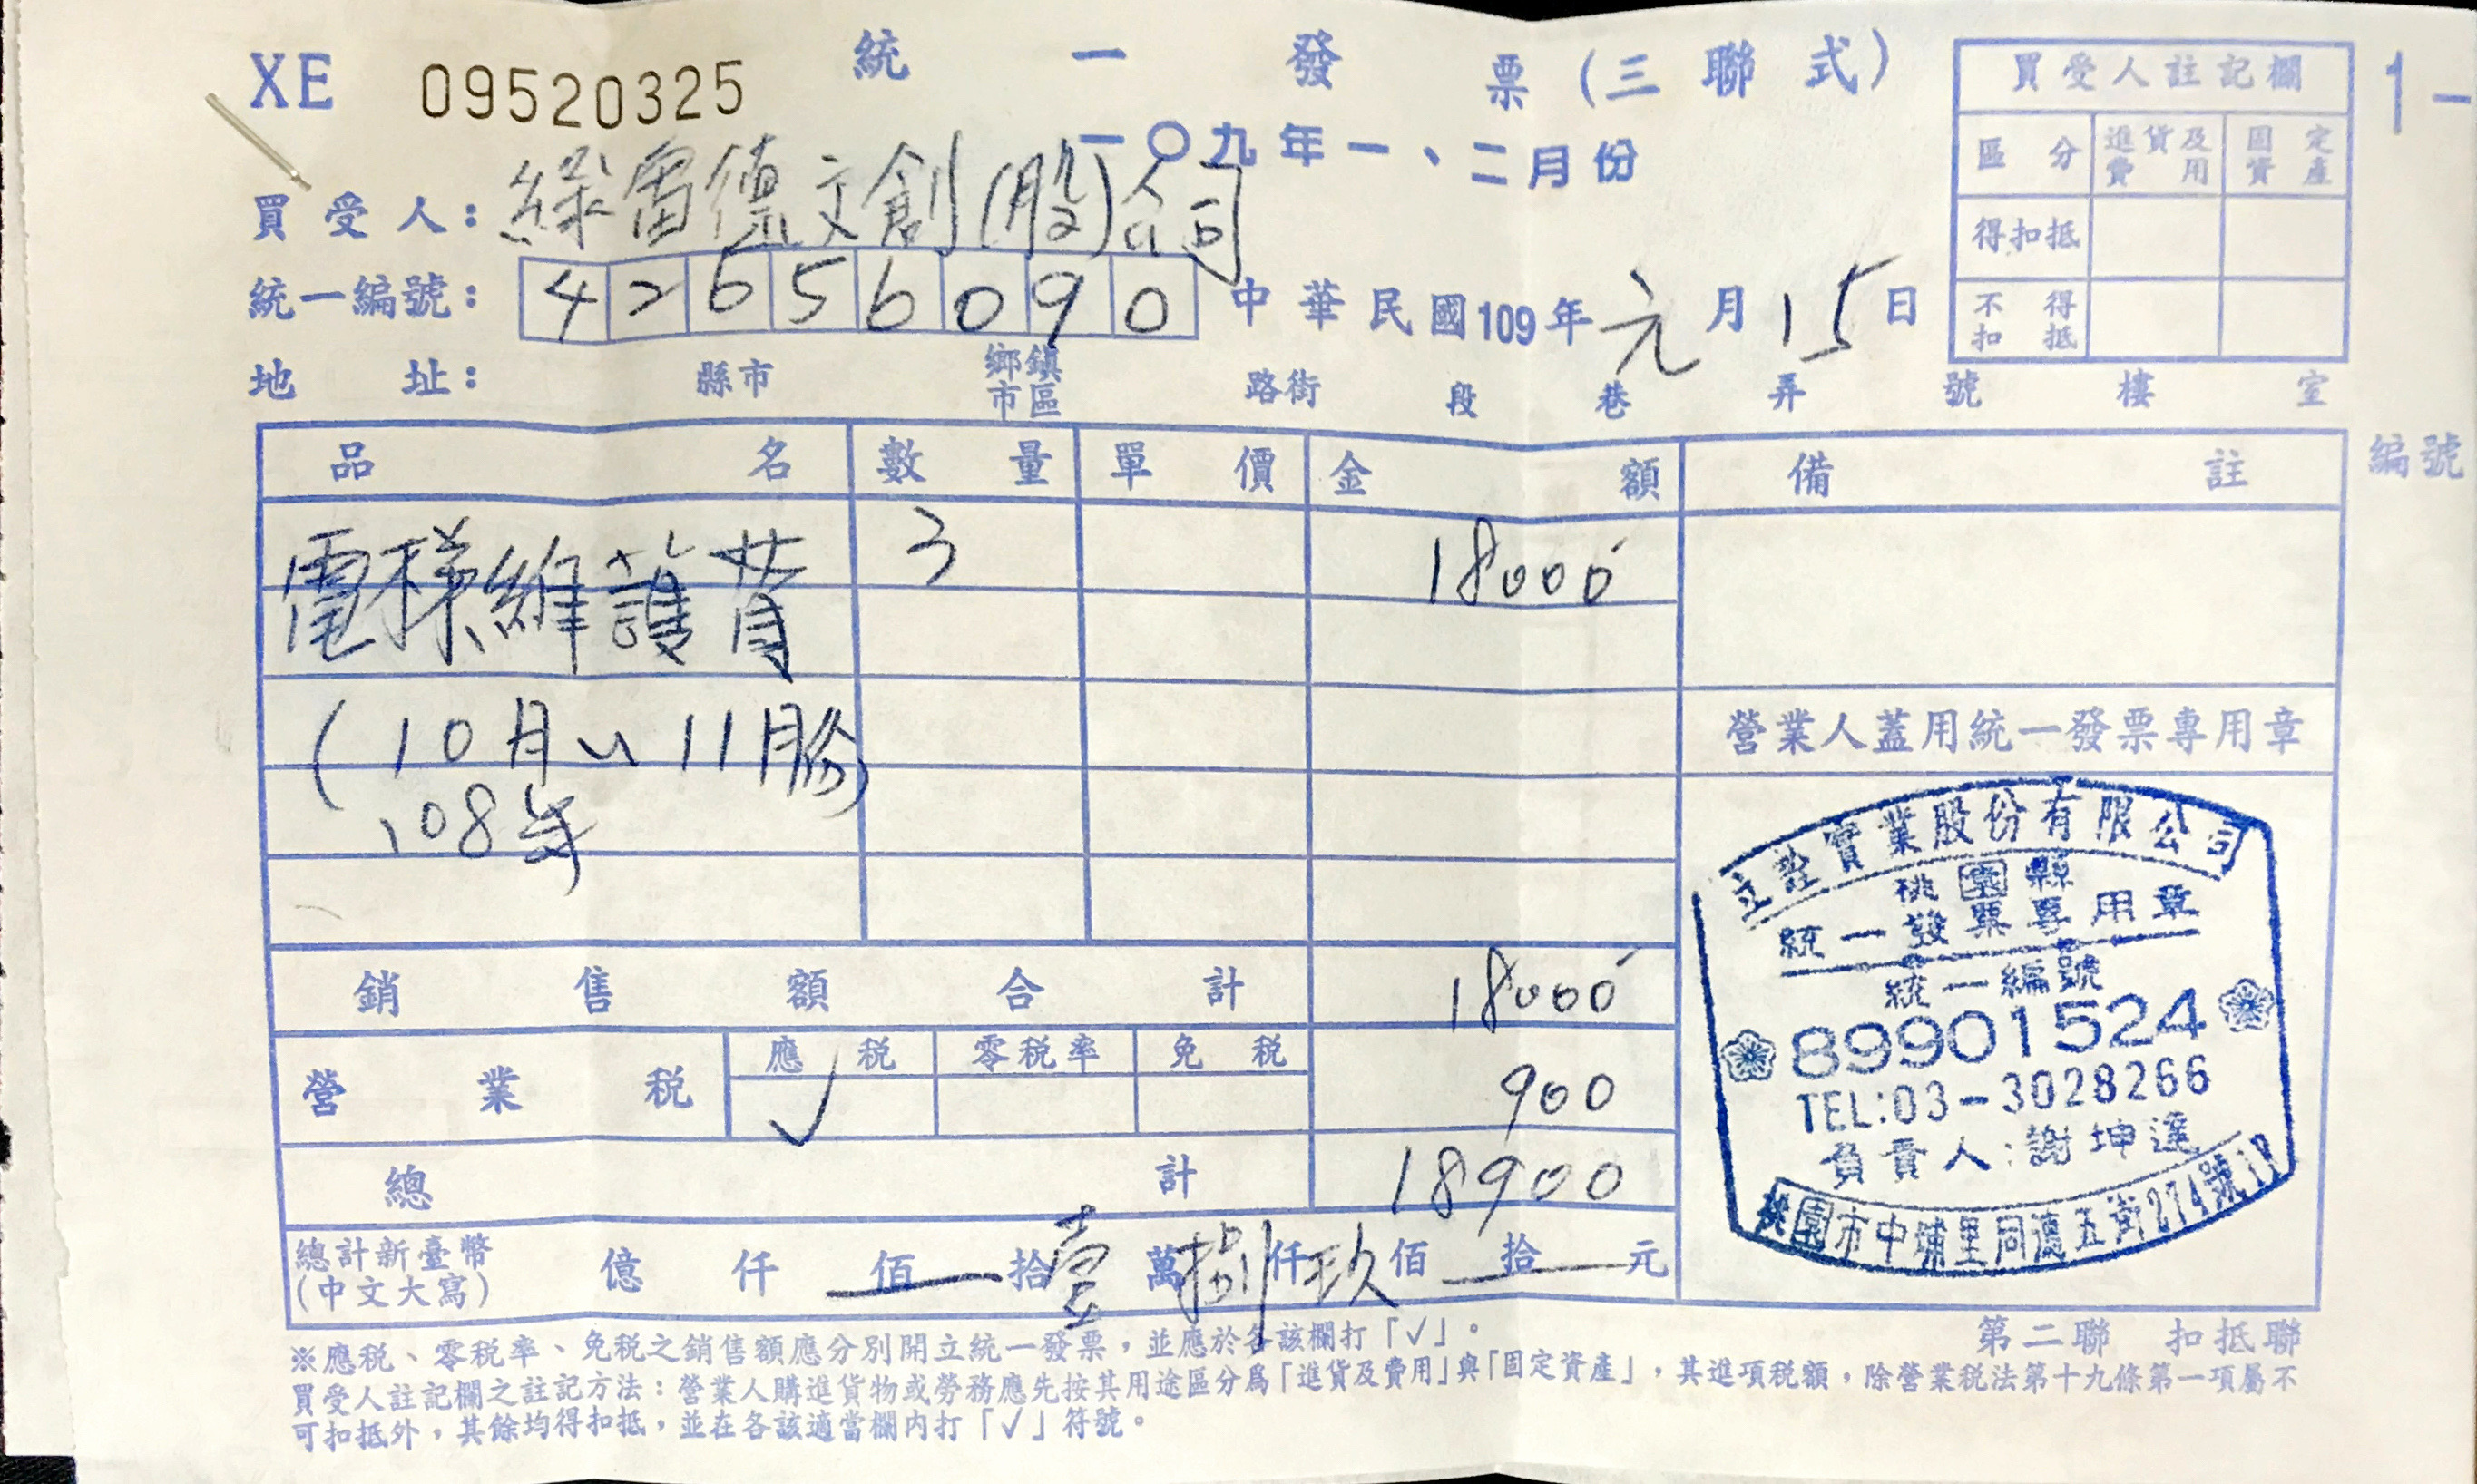 XE 09520325 統一發票(三聯式)
一〇九年一、二月份
買受人註記欄
區分 進貨及費用 固定資產
得扣抵
不得扣抵
1-
買受人: 綠雷德文創(股)公司
統一編號: 42656090 中華民國109年元月15日
地址: 縣市 鄉鎮市區 路街 段 巷 弄 號 樓 室
品名 數量 單價 金額 備註 編號
電梯維護費 3 18000
(10月 11月份)
108年
營業人蓋用統一發票專用章
銷售額合計 18000
營業稅 應稅 ✓ 零稅率 免稅 900
總計 18900
總計新臺幣(中文大寫) 億 仟 佰 拾 壹 萬 捌 仟 玖 佰 拾 元
立詮實業股份有限公司
桃園縣
統一發票專用章
統一編號
89901524
TEL:03-3028266
負責人:謝坤達
桃園市中埔里同德五街274號1F
第二聯 扣抵聯
※應稅、零稅率、免稅之銷售額應分別開立統一發票,並應於各該欄打「✓」。
買受人註記欄之註記方法:營業人購進貨物或勞務應先按其用途區分爲「進貨及費用」與「固定資產」,其進項稅額,除營業稅法第十九條第一項屬不
可扣抵外,其餘均得扣抵,並在各該適當欄內打「✓」符號。